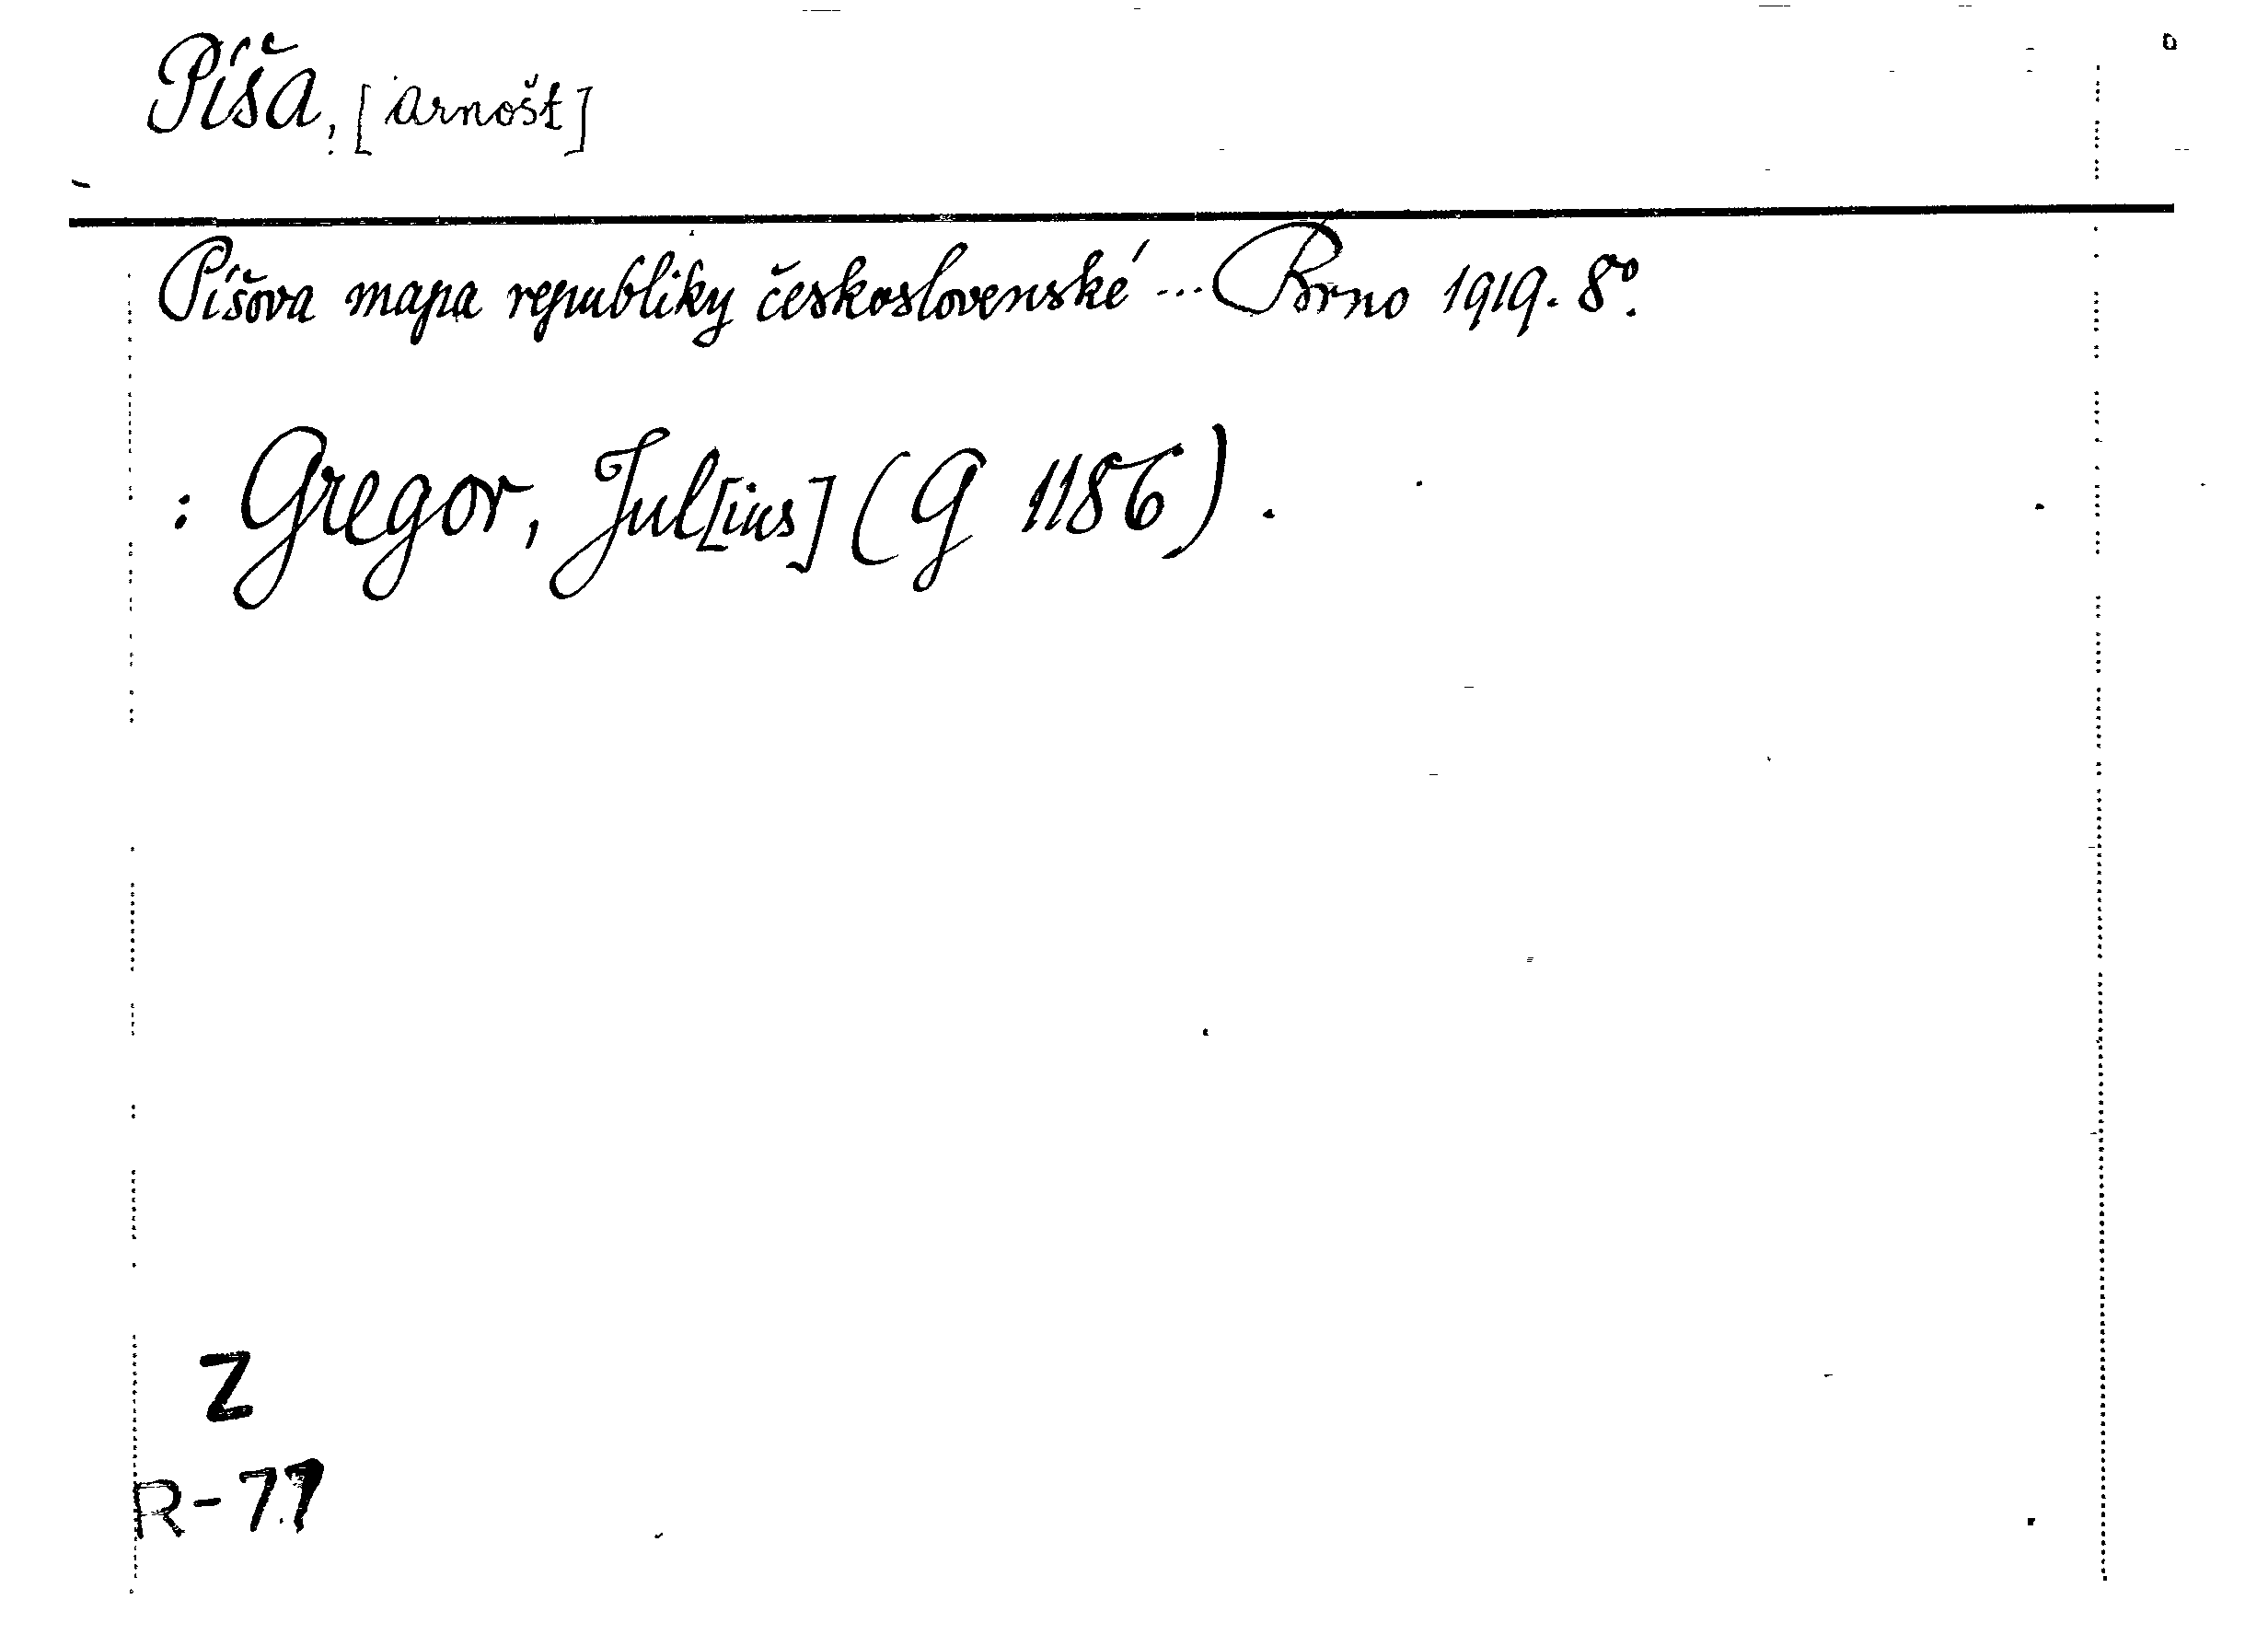 Píša, [Arnošt]
Píšova mapa republiky československé ... Brno 1919. 8°.
: Gregor, Jul[ius] (G 1186).
Z
R-77